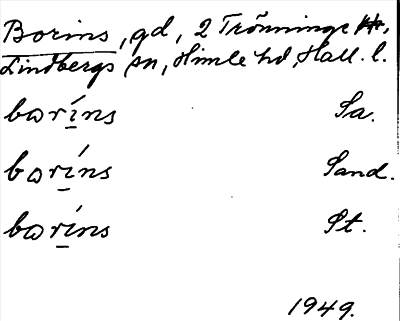 Borins, gd, 2 Trönninge
Lindbergs sn, Himle hd, Hall. l.
borí̱ns Sa.
borí̱ns Sand.
borí̱ns St.
1949.